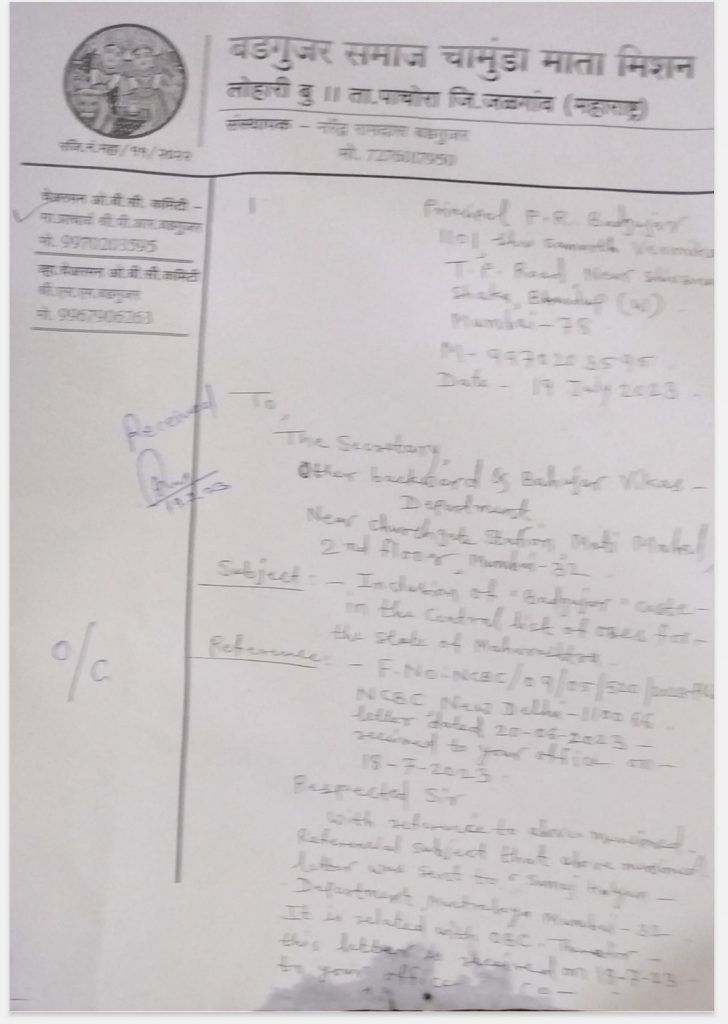 बडगुजर समाज चामुंडा माता मिशन
लोहारी बु ॥ ता.पाचोरा जि.जळगांव (महाराष्ट्र)
संस्थापक - नरेंद्र रामदास बडगुजर
मो. 7276017950
रजि.नं.महा/११/२०२२
चेअरमन ओ.बी.सी. कमिटी -
मा.प्राचार्य श्री.पी.आर.बडगुजर
मो. 9970203595
व्हा.चेअरमन ओ.बी.सी.कमिटी
मो. 9967906263
Principal P.R. Badgujar
1101, Samarth
T.P. Road, Near
Shakha, Bhandup (w)
Mumbai-78
M- 9970203595
Date - 19 July 2023
Received
To,
The Secretary,
Other backward & Bahujan Vikas -
Department
Near churchgate Station, Mahal,
2nd floor, Mumbai-32
Subject: - Inclusion of "Badgujar" caste -
in the Central list of OBCs for -
the state of Maharashtra.
Reference: - F.No-NCBC/09/05/520/2023-
NCBC New Delhi-110066
letter dated 20-06-2023 -
received to your office on -
18-7-2023
O/C
Respected Sir
with reference to above mentioned
Referencial subject that above mentioned
letter was sent to "Samaj Kalyan -
Department, Mantralaya Mumbai-32
It is related with OBC -
this letter is received on 18-7-23
to your office